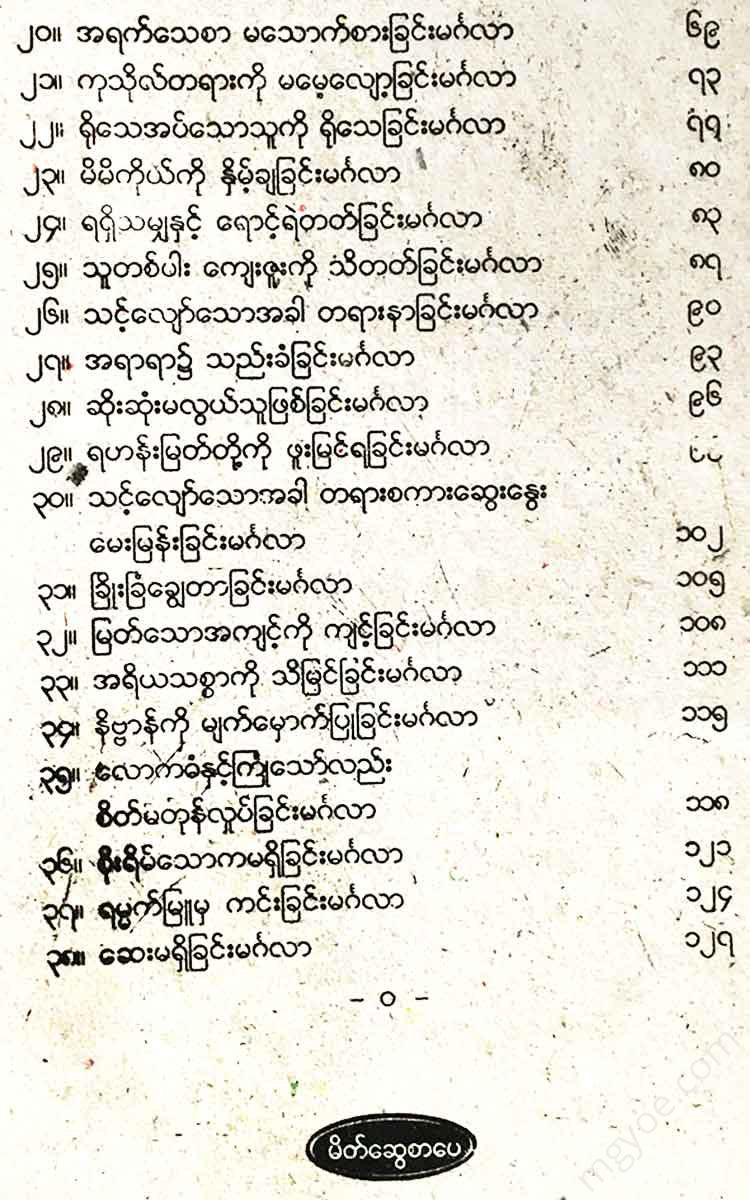 ၂၀။ အရက်သေစာ မသောက်စားခြင်းမင်္ဂလာ ၆၉
၂၁။ ကုသိုလ်တရားကို မမေ့လျော့ခြင်းမင်္ဂလာ ၇၃
၂၂။ ရိုသေအပ်သောသူကို ရိုသေခြင်းမင်္ဂလာ ၇၇
၂၃။ မိမိကိုယ်ကို နှိမ့်ချခြင်းမင်္ဂလာ ၈၀
၂၄။ ရရှိသမျှနှင့် ရောင့်ရဲတတ်ခြင်းမင်္ဂလာ ၈၃
၂၅။ သူတစ်ပါး ကျေးဇူးကို သိတတ်ခြင်းမင်္ဂလာ ၈၇
၂၆။ သင့်လျော်သောအခါ တရားနာခြင်းမင်္ဂလာ ၉၀
၂၇။ အရာရာ၌ သည်းခံခြင်းမင်္ဂလာ ၉၃
၂၈။ ဆိုးဆုံးမလွယ်သူဖြစ်ခြင်းမင်္ဂလာ ၉၆
၂၉။ ရဟန်းမြတ်တို့ကို ဖူးမြင်ရခြင်းမင်္ဂလာ
၃၀။ သင့်လျော်သောအခါ တရားစကားဆွေးနွေး
မေးမြန်းခြင်းမင်္ဂလာ ၁၀၂
၃၁။ ခြိုးခြံချွေတာခြင်းမင်္ဂလာ ၁၀၅
၃၂။ မြတ်သောအကျင့်ကို ကျင့်ခြင်းမင်္ဂလာ ၁၀၈
၃၃။ အရိယသစ္စာကို သိမြင်ခြင်းမင်္ဂလာ ၁၁၁
၃၄။ နိဗ္ဗာန်ကို မျက်မှောက်ပြုခြင်းမင်္ဂလာ ၁၁၅
၃၅။ လောကဓံနှင့်ကြုံသော်လည်း
စိတ်မတုန်လှုပ်ခြင်းမင်္ဂလာ ၁၁၈
၃၆။ စိုးရိမ်သောကမရှိခြင်းမင်္ဂလာ ၁၂၁
၃၇။ ရမ္မက်မြူမှ ကင်းခြင်းမင်္ဂလာ ၁၂၄
၃၈။ ဆေးမရှိခြင်းမင်္ဂလာ ၁၂၇
- ၀ -
မိတ်ဆွေစာပေ
mgyoe.com